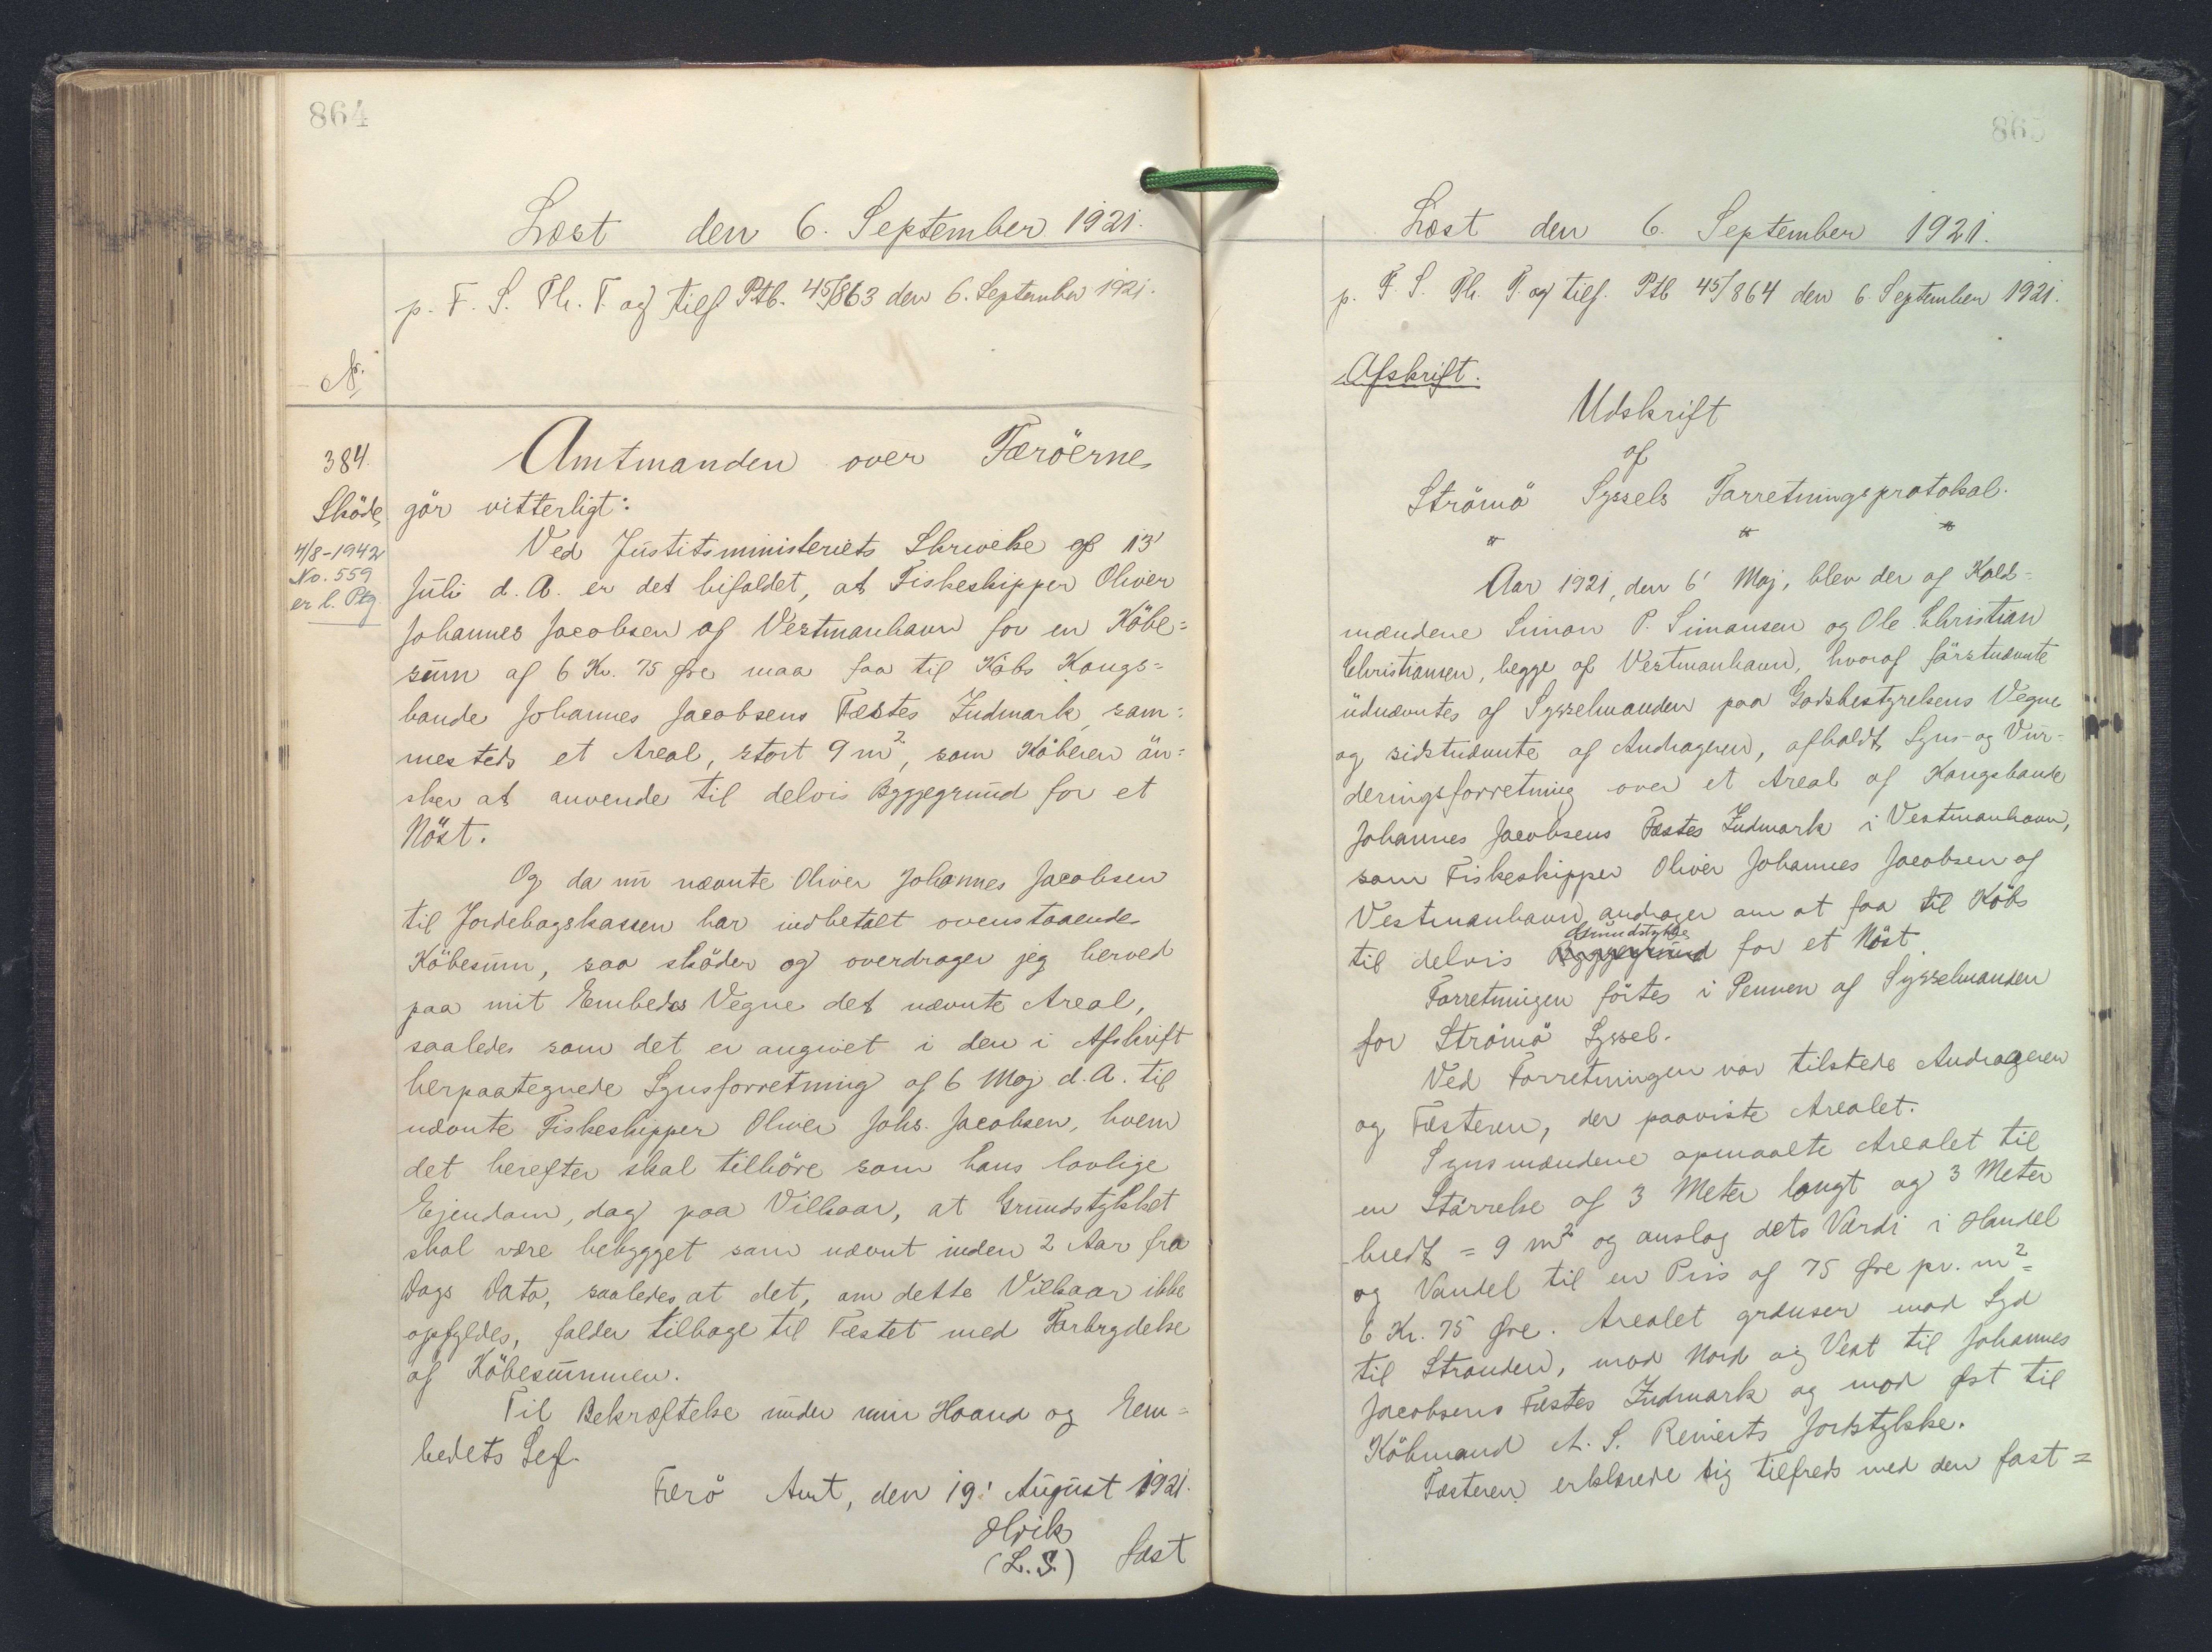 864
Læst den 6. September 1921.
p. F. S. Th. T. og tilf Ptb. 45/863 den 6. September 1921.
N.
384.
Sköde
4/8-1942
No. 559
er l. Ptg.
Amtmanden over Færöerne
gör vitterligt:
Ved Justitsministeriets Skrivelse af 13'
Juli d. A. er det bifaldet, at Fiskeskipper Oliver
Johannes Jacobsen af Vestmanhavn for en Köbe=
sum af 6 Kr. 75 Øre maa faa til Köbs Kongs=
bonde Johannes Jacobsens Fæstes Indmark sam=
mesteds et Areal, stort 9 m², som Köberen ön=
sker at anvende til delvis Byggegrund for et
Nöst.
Og da nu nævnte Oliver Johannes Jacobsen
til Jordebogskassen har indbetalt ovenstaaende
Köbesum, saa sköder og overdrager jeg herved
paa mit Embedes Vegne det nævnte Areal,
saaledes som det er angivet i den i Afskrift
herpaategnede Synsforretning af 6 Maj d. A. til
nævnte Fiskeskipper Oliver Johs. Jacobsen, hvem
det herefter skal tilhöre som hans lovlige
Ejendom, dog paa Vilkaar, at Grundstykket
skal være bebygget som nævnt inden 2 Aar fra
Dags Dato, saaledes at det, om dette Vilkaar ikke
opfyldes, falder tilbage til Fæstet med Forbrydelse
af Köbesummen.
Til Bekræftelse under min Haand og Em=
bedets Segl.
Færö Amt, den 19' August 1921.
(L.S.) fast
865
Læst den 6. September 1921.
p. F. S. Th. T. og tilf. Ptb 45/864 den 6. September 1921.
Afskrift.
Udskrift
af
Strömö Syssels Forretningsprotokol.
" " "
Aar 1921, den 6' Maj, blev der af Kald=
mændene Simon P. Simonsen og Ole Christian
Christiansen, begge af Vestmanhavn, hvoraf förstnævnte
udnævntes af Sysselmanden paa Godsbestyrelsens Vegne
og sidstnævnte af Andrageren, afholdt Syns- og Vur=
deringsforretning over et Areal af Kongsbonde
Johannes Jacobsens Fæstes Indmark i Vestmanhavn,
som Fiskeskipper Oliver Johannes Jacobsen af
Vestmanhavn andrager om at faa til Köbs
Grundstykke
til delvis Byggegrund for et Nöst.
Forretningen förtes i Pennen af Sysselmanden
for Strömö Syssel.
Ved Forretningen var tilstede Andrageren
og Fæsteren, der paaviste Arealet.
Synsmændene opmaalte Arealet til
en Störrelse af 3 Meter langt og 3 Meter
bredt = 9 m² og anslog dets Værdi i Handel
og Vandel til en Pris af 75 Øre pr. m² =
6 Kr. 75 Øre. Arealet grænser mod Syd
til Stranden, mod Nord og Vest til Johannes
Jacobsens Fæstes Indmark og mod Øst til
Köbmand A. S. Reinerts Jordstykke.
Fæsteren erklærede sig tilfreds med den fast=